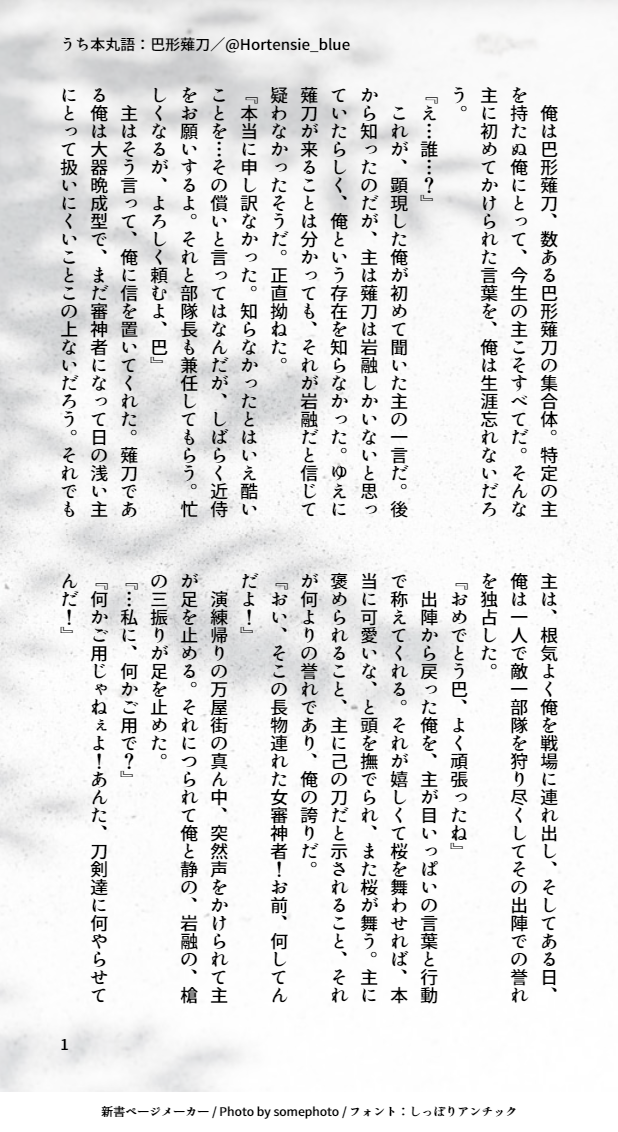 うち本丸語：巴形薙刀／@Hortensie_blue
　俺は巴形薙刀、数ある巴形薙刀の集合体。特定の主
を持たぬ俺にとって、今生の主こそすべてだ。そんな
主に初めてかけられた言葉を、俺は生涯忘れないだろ
う。
『え…誰…？』
　これが、顕現した俺が初めて聞いた主の一言だ。後
から知ったのだが、主は薙刀は岩融しかいないと思っ
ていたらしく、俺という存在を知らなかった。ゆえに
薙刀が来ることは分かっても、それが岩融だと信じて
疑わなかったそうだ。正直拗ねた。
『本当に申し訳なかった。知らなかったとはいえ酷い
ことを…その償いと言ってはなんだが、しばらく近侍
をお願いするよ。それと部隊長も兼任してもらう。忙
しくなるが、よろしく頼むよ、巴』
　主はそう言って、俺に信を置いてくれた。薙刀であ
る俺は大器晩成型で、まだ審神者になって日の浅い主
にとって扱いにくいことこの上ないだろう。それでも
主は、根気よく俺を戦場に連れ出し、そしてある日、
俺は一人で敵一部隊を狩り尽くしてその出陣での誉れ
を独占した。
『おめでとう巴、よく頑張ったね』
　出陣から戻った俺を、主が目いっぱいの言葉と行動
で称えてくれる。それが嬉しくて桜を舞わせれば、本
当に可愛いな、と頭を撫でられ、また桜が舞う。主に
褒められること、主に己の刀だと示されること、それ
が何よりの誉れであり、俺の誇りだ。
『おい、そこの長物連れた女審神者！お前、何してん
だよ！』
　演練帰りの万屋街の真ん中、突然声をかけられて主
が足を止める。それにつられて俺と静の、岩融の、槍
の三振りが足を止めた。
『…私に、何かご用で？』
『何かご用じゃねぇよ！あんた、刀剣達に何やらせて
んだ！』
1
新書ページメーカー / Photo by somephoto / フォント：しっぽりアンチック